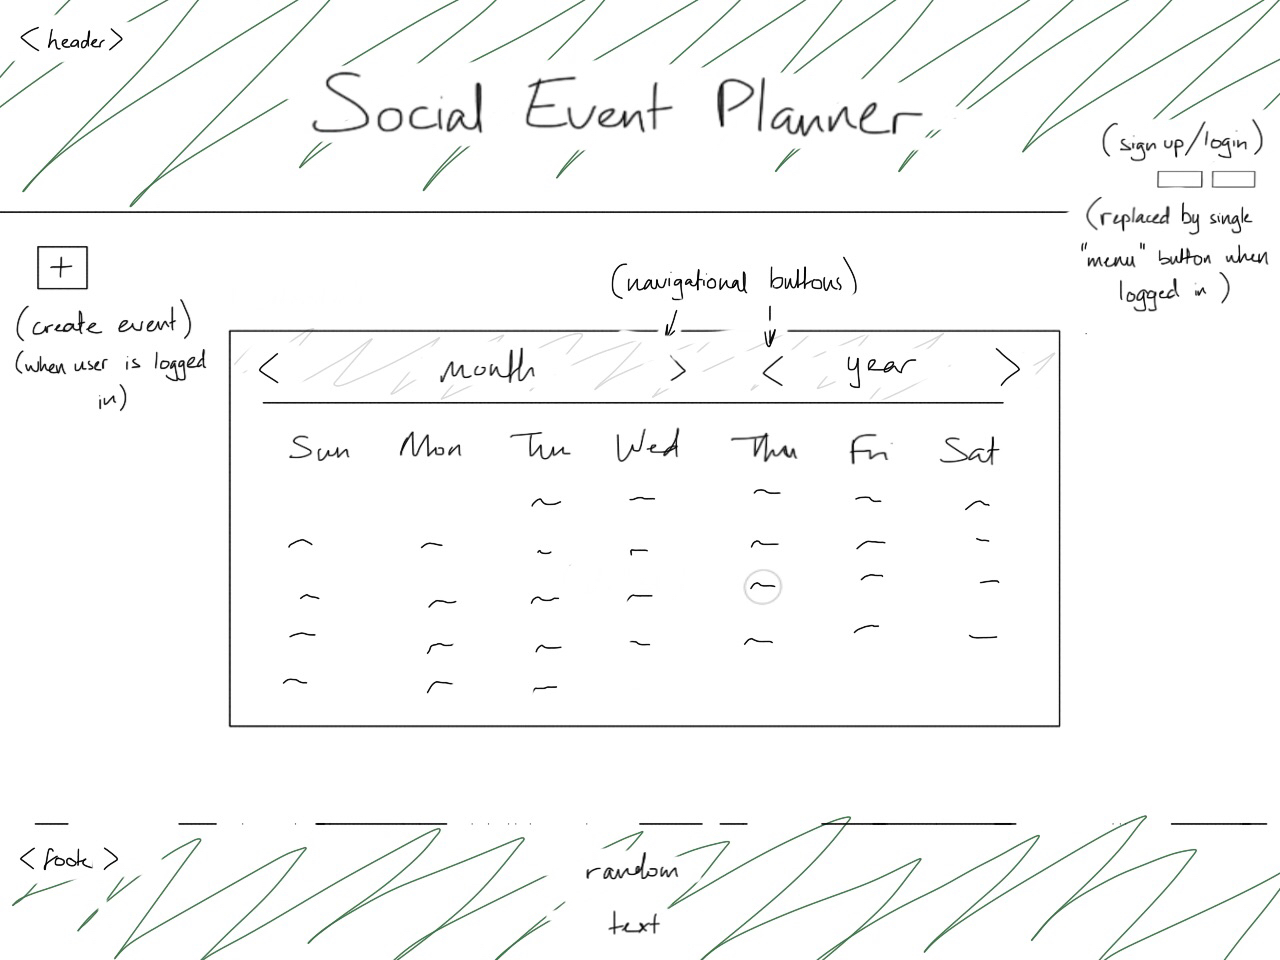 <header>
Social Event Planner
(sign up/login)
(replaced by single
"menu" button when
logged in)
+
(create event)
(when user is logged
in)
(navigational buttons)
< month > < year >
Sun Mon Tu Wed Thu Fri Sat
<foote>
random
text